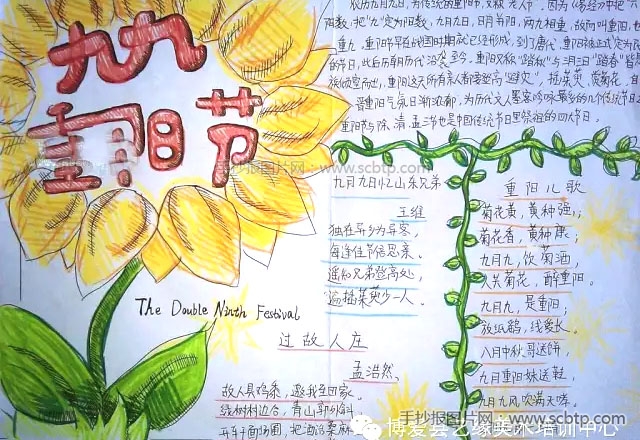 九九
重阳节
农历九月九日,为传统的重阳节,又称"老人节"。因为《易经》中把"六"
阳数,把"九"定为阳数,九月九日,日月并阳,两九相重,故而叫重阳,也
重九,重阳节早在战国时期就已经形成,到了唐代,重阳被正式定为民
的节日,此后历朝历代沿袭至今。重阳又称"踏秋"与三月三日"踏春"皆是
族倾室而出,重阳这天所有亲人都要登高"避灾",插茱萸、赏菊花。自
晋重阳气氛日渐浓郁,为历代文人墨客吟咏最多的几个传统节日之
重阳节与除、清、盂三节也是中国传统节日里祭祖的四大节日。
手抄报图片网:www.scbtp.com
九月九日忆山东兄弟
王维
独在异乡为异客,
每逢佳节倍思亲。
遥知兄弟登高处,
遍插茱萸少一人。
重阳儿歌
菊花黄,黄种强;
菊花香,黄种康;
九月九,饮菊酒,
人共菊花,醉重阳。
九月九,是重阳;
放纸鹞,线爰长。
八月中秋哥送饼,
九月重阳妹送鞋
九月九风吹满天嗦。
The Double Ninth Festival
过故人庄
孟浩然
故人具鸡黍,邀我至田家。
绿树村边合,青山郭外斜
开轩面场圃,把酒话桑麻
手抄报图片网
www.scbtp.com
博爱芸艺缘美术培训中心